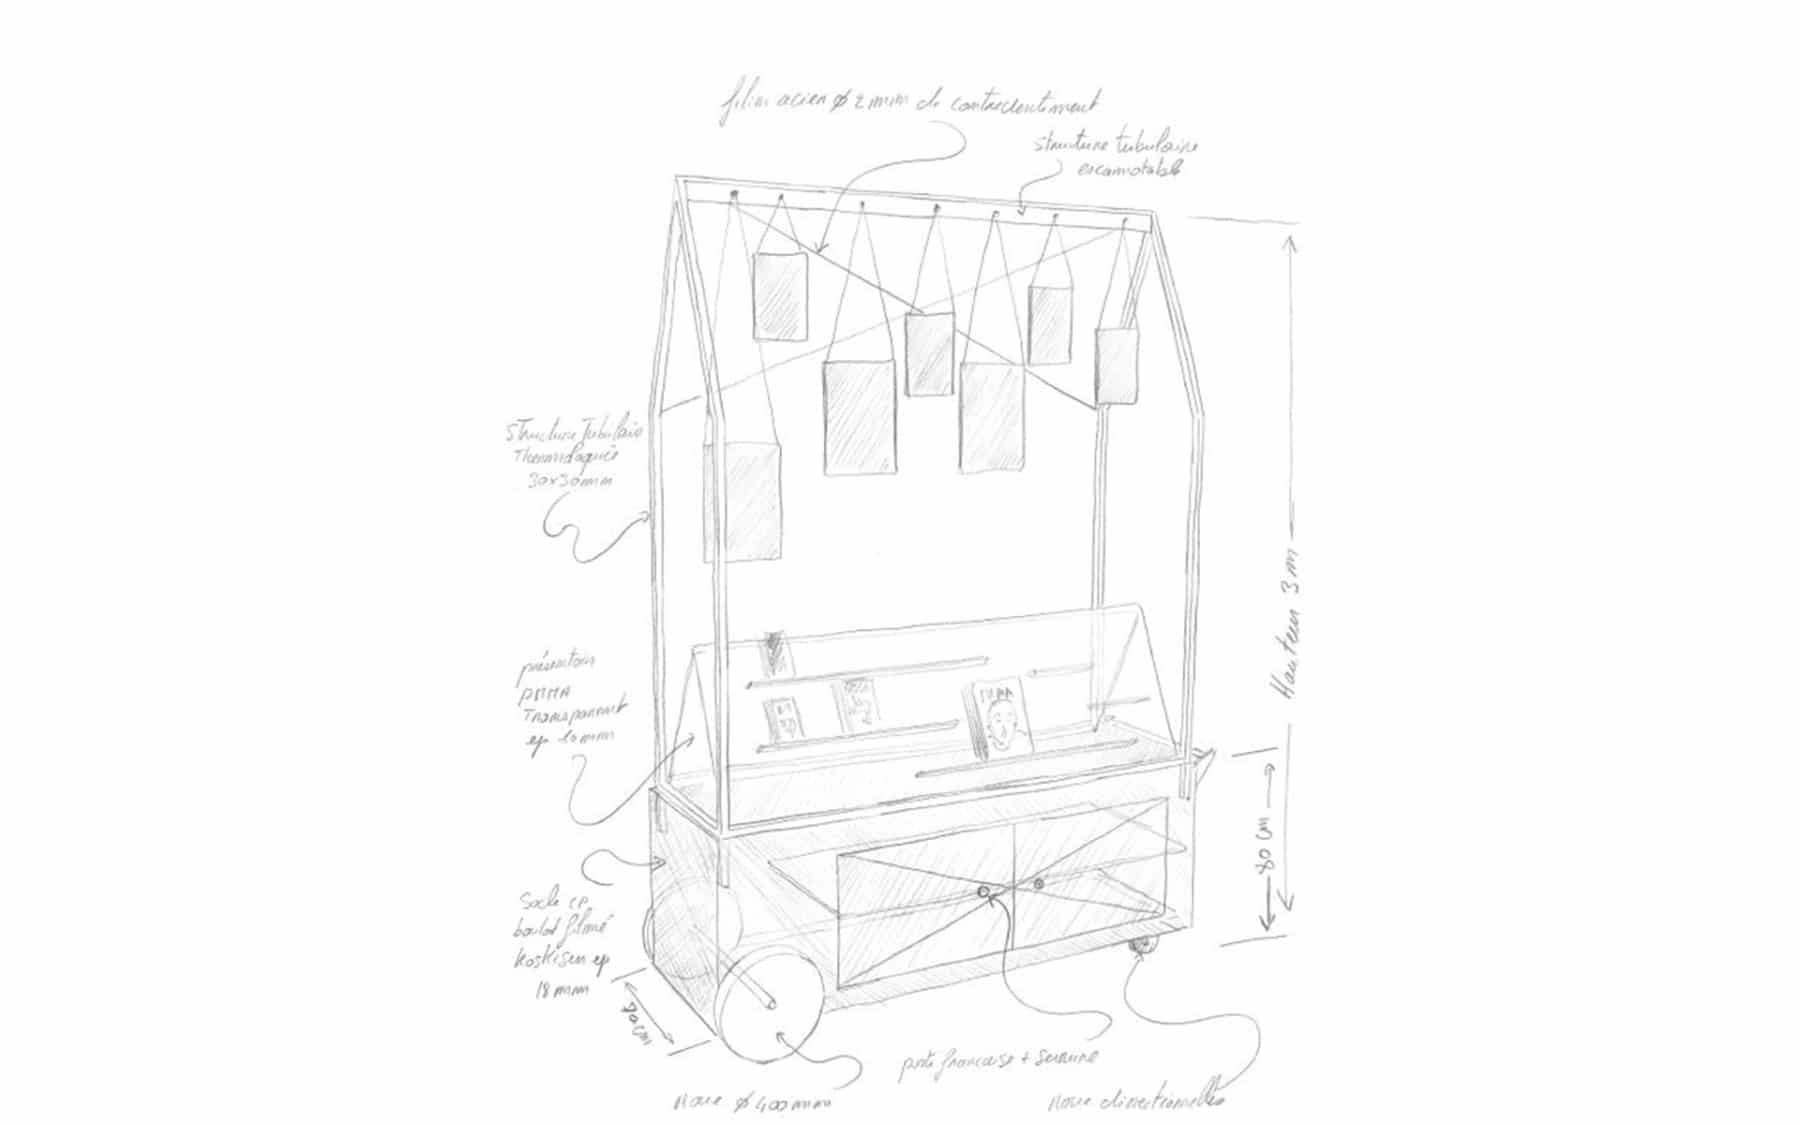 filin acier ø 2 mm de contreventement
structure tubulaire
escamotable
structure tubulaire
Thermolaquée
30x30mm
présentoir
PMMA
Transparent
ep 10 mm
Hauteur 3 m
80 cm
Socle CP
boulot filmé
Koskisen ep
18 mm
80 cm
porte française + serrure
Roue ø 400 mm
Roue directionnelles